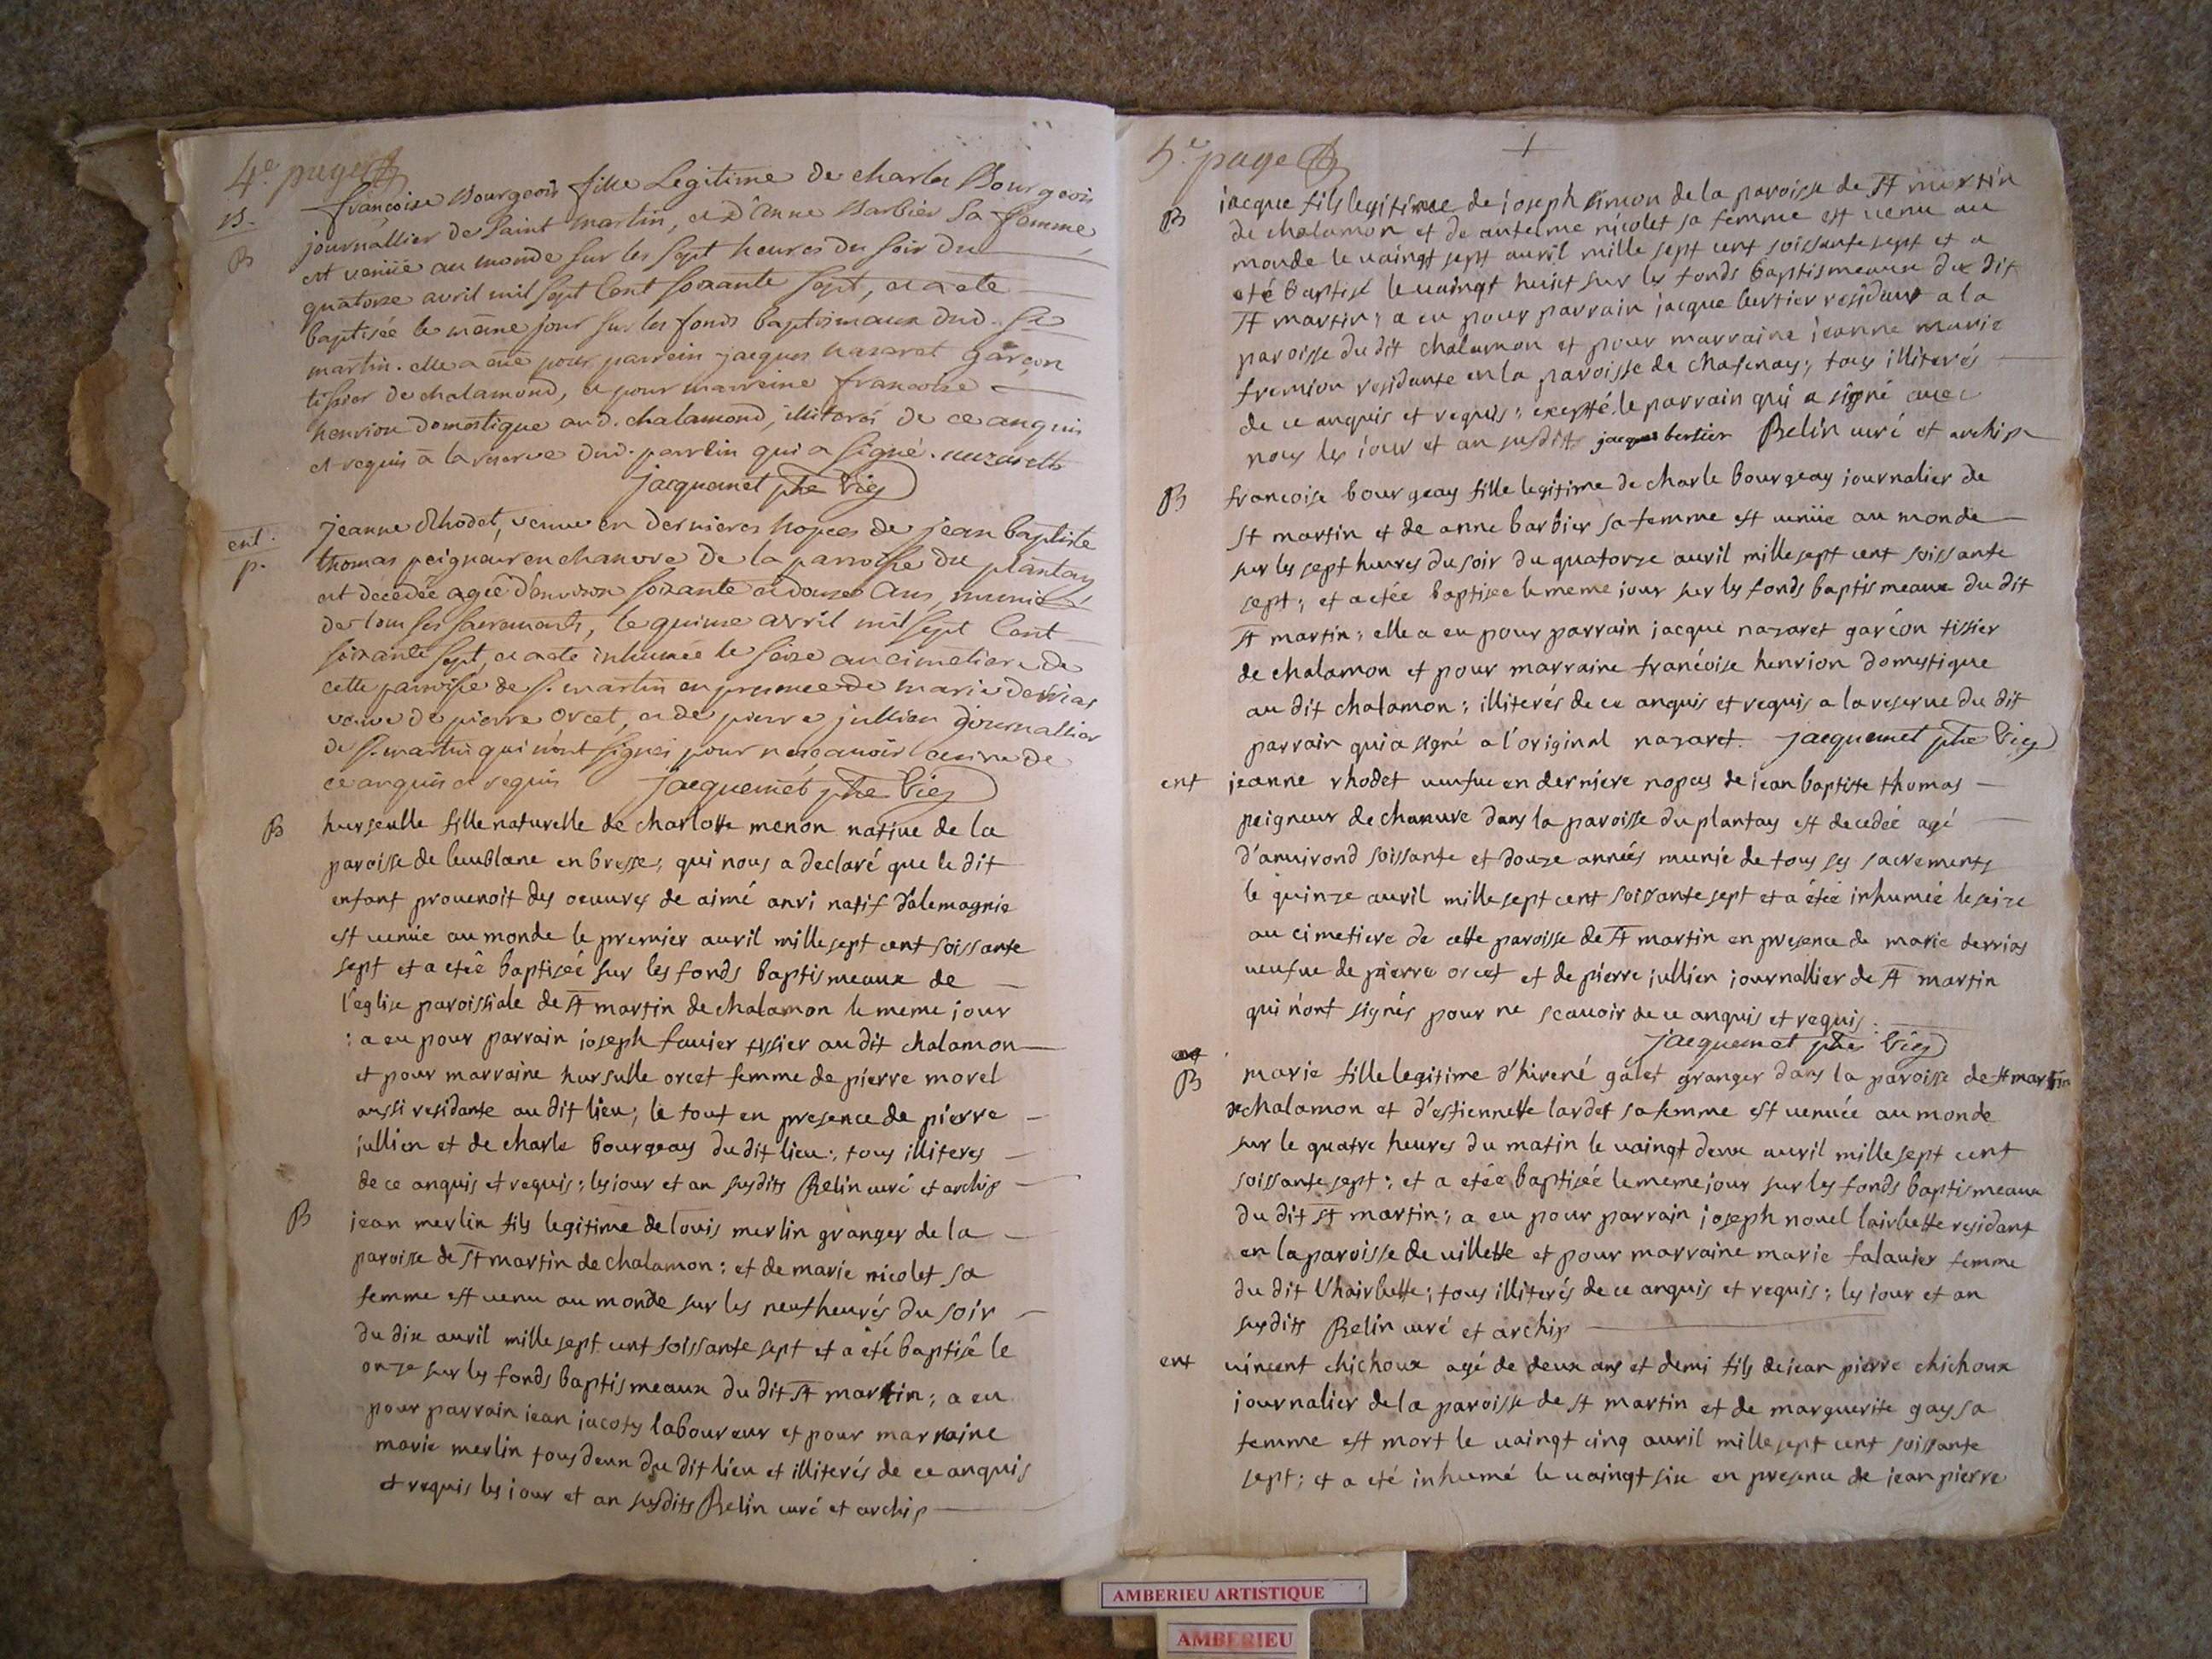 4e page
B.
francoise Bourgeois fille Legitime de charles Bourgeois
journallier de Saint martin, et d'anne Barbier Sa femme,
B
est venüe au monde sur les sept heures du soir du
quatorze avril mil sept Cent soixante sept, et a ete
baptisée le même jour sur les fonds baptismaux dud. St
martin. elle a eüe pour parrein jacques nazaret garçon
tissier de chalamond, et pour marreine francoise
henrion domestique aud. chalamond, illiterés de ce anquis
et requis à la reserve dud. parrein qui a signé. nazareth
jacquemet ptre vic
ent.
p.
jeanne Rhodet, veuve en dernieres nopces de jean baptiste
thomas peigneur en chanvre de la parroisse du plantay
est décédée agée d'environ soixante et douze ans, munie
de tous ses sacrements, le quinze avril mil sept Cent
soixante sept, et a ete inhumée le seize au cimetiere de
cette parroisse de St. martin en presence de marie derrias
veuve de pierre orcet, et de pierre jullien journallier
de St. martin qui n'ont signés pour ne sçavoir de
ce anquis et requis jacquemet ptre vic
B
hurseulle fille naturelle de charlotte menon native de la
paroisse de en bresse; qui nous a declaré que le dit
enfant prouenoit des oeuures de aimé anri natif d'alemagnie
est uenüe au monde le premier auril mille sept cent soissante
sept et a eteé baptiseé sur les fonds baptismeaux de
l'eglise paroissiale de St martin de chalamon le meme jour
: a eu pour parrain joseph fauier tissier au dit chalamon
et pour marraine hursulle orcet femme de pierre morel
aussi residante au dit lieu; le tout en presence de pierre
jullien et de charle bourgeay du dit lieu; tous illiteres
de ce anquis et requis; les iour et an susdits Relin curé et archip
B
jean merlin fils legitime de louis merlin granger de la
paroisse de St martin de chalamon: et de marie nicolet sa
femme est uenu au monde sur les neuf heurés du soir
du dix auril mille sept cent soissante sept et a eté baptisé le
onze sur les fonds baptismeaux du dit St martin; a eu
pour parrain iean iacoty laboureur et pour marraine
marie merlin tous deux du dit lieu et illiterés de ce anquis
et requis les iour et an susdits Relin curé et archip
5e page
B
iacque fils legitime de ioseph simon de la paroisse de St martin
de chalamon et de antelme nicolet sa femme est uenu au
monde le uaingt sept auril mille sept cent soissante sept et a
eté baptisé le uaingt huict sur les fonds baptismeaux du dit
St martin; a eu pour parrain jacque bertier residant a la
paroisse du dit chalamon et pour marraine jeanne marie
fremion residante en la paroisse de chatenay; tous illiterés
de ce anquis et requis; excepté le parrain qui a signé auec
nous les iour et an susdits jacques bertier Relin curé et archip
B
francoise bourgeay fille legitime de charle bourgeay journalier de
st martin et de anne barbier sa femme est uenüe au monde
sur les sept heures du soir du quatorze auril mille sept cent soissante
sept; et a eteé baptisee le meme iour sur les fonds baptismeaux du dit
St martin; elle a eu pour parrain jacque nazaret garcon tissier
de chalamon et pour marraine francoise henrion domestique
au dit chalamon; illiterés de ce anquis et requis a la reserue du dit
parrain qui a signé a l'original nazaret. jacquemet ptre vic
ent
jeanne rhodet ueufue en derniere nopces de iean baptiste thomas
peigneur de chanure dans la paroisse du plantay est decedeé agé
d'anuirond soissante et douze années munie de tous ses sacrements
le quinze auril mille sept cent soissante sept et a éteé inhumeé le seize
au cimetiere de cette paroisse de St martin en presence de marie derrias
ueufue de pierre orcet et de pierre jullien journallier de St martin
qui n'ont signés pour ne scauoir de ce anquis et requis.
jacquemet ptre vic
B
marie fille legitime d'hirené galet granger dans la paroisse de st martin
de chalamon et d'estiennette lardet sa femme est uenuée au monde
sur le quatre heures du matin le uaingt deux auril mille sept cent
soissante sept; et a eteé baptiseé le meme jour sur les fonds baptismeaux
du dit st martin; a eu pour parrain joseph nouel lairbette residant
en la paroisse de uillette et pour marraine marie falauier femme
du dit lhairbette; tous illiterés de ce anquis et requis; les iour et an
susdits Relin curé et archip
ent
uincent chichoux agé de deux ans et demi fils de iean pierre chichoux
journalier de la paroisse de st martin et de marguerite gay sa
femme est mort le uaingt cinq auril mille sept cent soissante
sept; et a eté inhumé le uaingt six en presence de iean pierre
AMBERIEU ARTISTIQUE
AMBERIEU